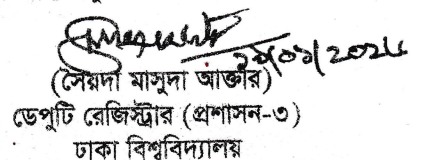 (সৈয়দা মাসুদা আক্তার)
ডেপুটি রেজিস্ট্রার (প্রশাসন-৩)
ঢাকা বিশ্ববিদ্যালয়